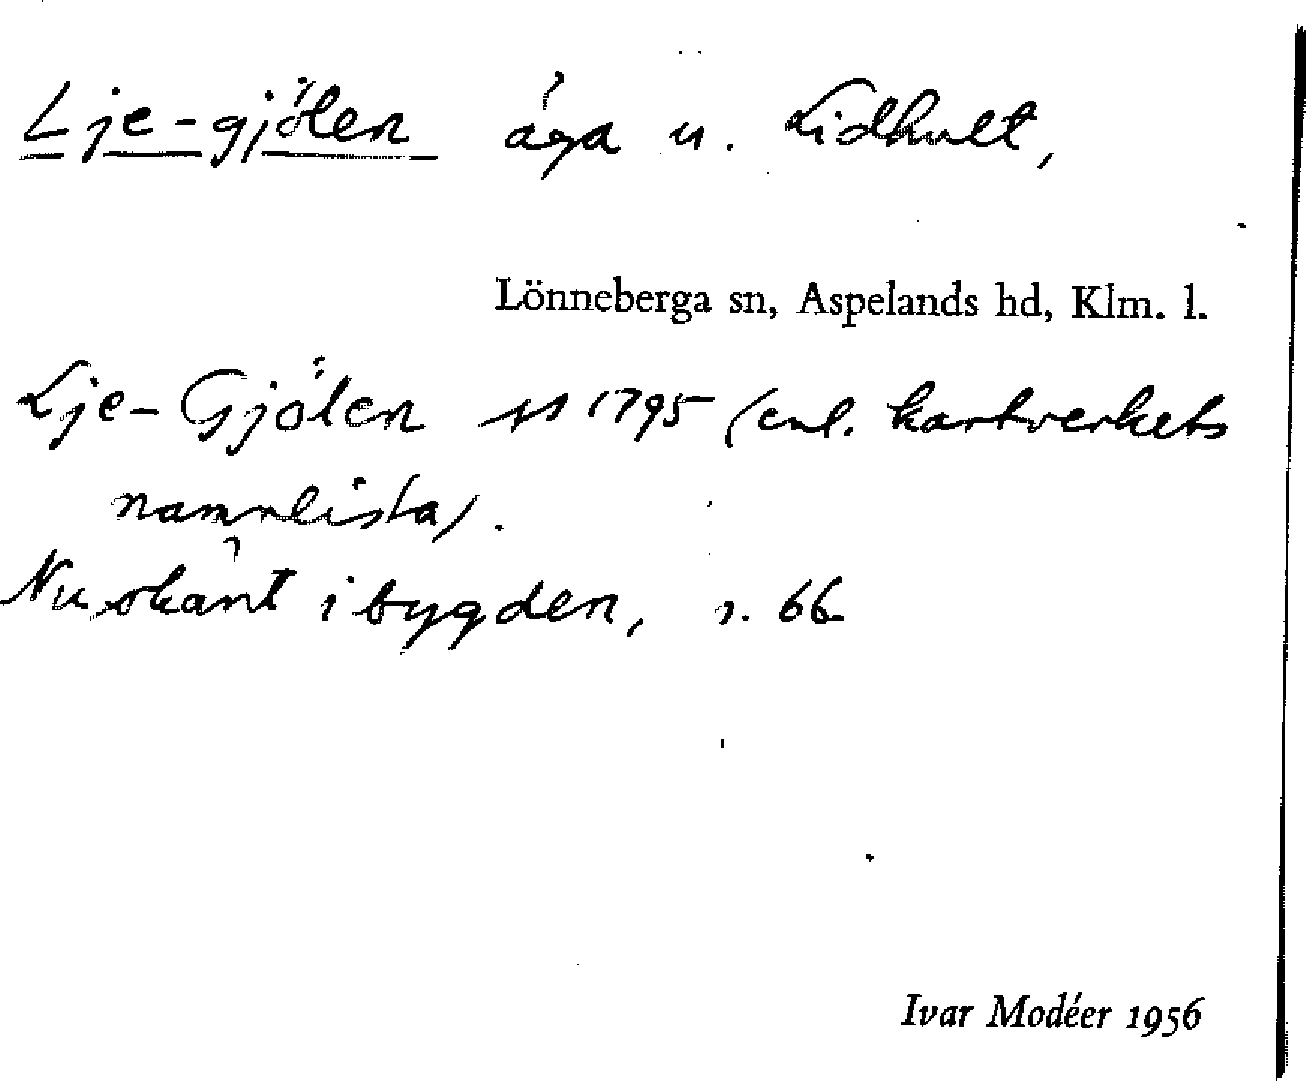 Lje-gjölen äga u. Lidhult,
Lönneberga sn, Aspelands hd, Klm. l.
Lje-Gjölen 1795 (enl. kartverkets
namnlista).
Nu okänt i bygden, s. 66
Ivar Modéer 1956